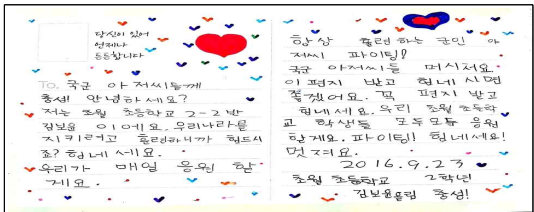 당신이 있어
언제나
든든합니다
TO. 국군 아저씨들께
충성! 안녕하세요?
저는 초월 초등학교 2-2반
김보윤 이에요. 우리나라를
지키려고 훈련하니까 힘드시
죠? 힘내세요.
우리가 매일 응원 할
게요.
항상 훈련하는 군인 아
저씨 파이팅!
국군 아저씨들 멋져요.
이 편지 받고 힘내시면
좋겠어요. 꼭 편지 받고
힘내세요. 우리 초월 초등학
교 학생들 모두모두 응원
할게요. 파이팅! 힘내세요!
멋져요.
2016.9.23
초월 초등학교 2학년
김보윤올림 충성!